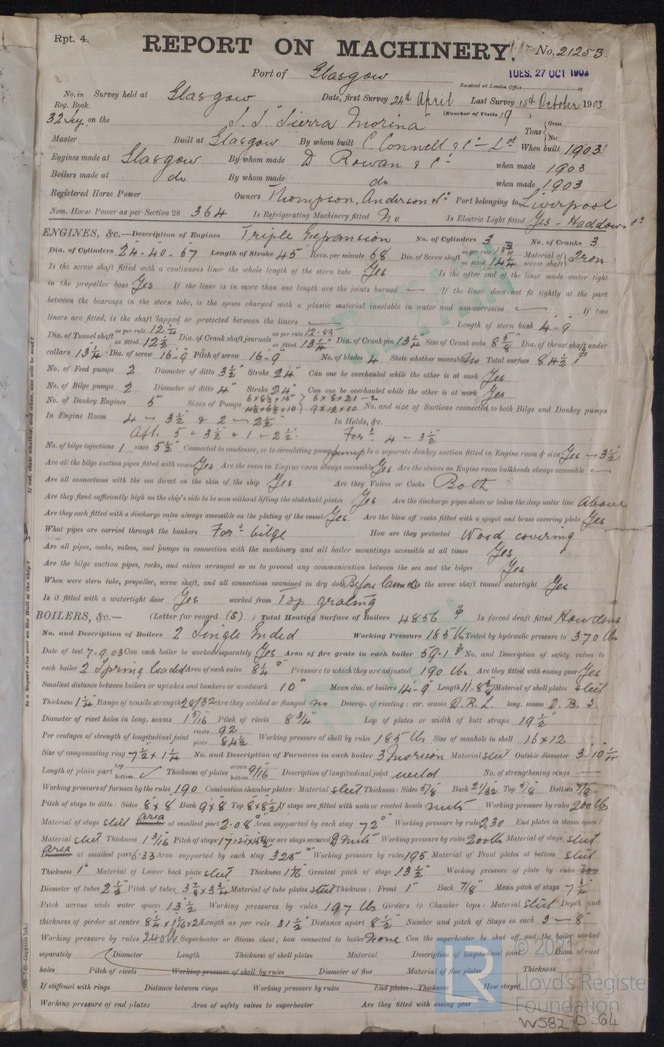 Rpt. 4.
REPORT ON MACHINERY. No. 21253
Port of Glasgow
TUES. 27 OCT 1903
Received at London Office
No. in Survey held at Glasgow Date, first Survey 24th April Last Survey 15th October 1903
Reg. Book.
(Number of Visits 19
on the S.S. "Sierra Morina" Tons { Gross Net
Master Built at Glasgow By whom built C. Connell & Co Ld When built 1903
Engines made at Glasgow By whom made D Rowan & Co when made 1903
Boilers made at do By whom made do when made 1903
Registered Horse Power Owners Thompson, Anderson & Co Port belonging to Liverpool
Nom. Horse Power as per Section 28 364 Is Refrigerating Machinery fitted No Is Electric Light fitted Yes - Haddow
ENGINES, &c.—Description of Engines Triple Expansion No. of Cylinders 3 No. of Cranks 3
Dia. of Cylinders 24-40-67 Length of Stroke 45" Revs. per minute 68 Dia. of Screw shaft as fitted 14 Material of screw shaft Iron
Is the screw shaft fitted with a continuous liner the whole length of the stern tube Yes Is the after end of the liner made water tight
in the propeller boss Yes If the liner is in more than one length are the joints burned — If the liner does not fit tightly at the part
between the bearings in the stern tube, is the space charged with a plastic material insoluble in water and non-corrosive — If two
liners are fitted, is the shaft lapped or protected between the liners — Length of stern bush 4-9
Dia. of Tunnel shaft as per rule as fitted Dia. of Crank shaft journals as per rule 12.83 as fitted 13¼ Dia. of Crank pin 13¼ Size of Crank webs Dia. of thrust shaft under
collars 13¼ Dia. of screw 16-9 Pitch of screw 16-9" No. of blades 4 State whether moveable No Total surface 84½
No. of Feed pumps 2 Diameter of ditto 3½" Stroke 24" Can one be overhauled while the other is at work Yes
No. of Bilge pumps 2 Diameter of ditto 4" Stroke 24" Can one be overhauled while the other is at work Yes
No. of Donkey Engines 5 Sizes of Pumps No. and size of Suctions connected to both Bilge and Donkey pumps
In Engine Room 4 - 3½ & 2 - 2½ In Holds, &c.
Aft. 5 - 3½ & 1 - 2½. For'd 4 - 3½
No. of bilge injections 1 sizes 5½ Connected to condenser, or to circulating pump pump Is a separate donkey suction fitted in Engine room & size Yes - 3½
Are all the bilge suction pipes fitted with roses Yes Are the roses in Engine room always accessible Yes Are the sluices on Engine room bulkheads always accessible —
Are all connections with the sea direct on the skin of the ship Yes Are they Valves or Cocks Both
Are they fixed sufficiently high on the ship's side to be seen without lifting the stokehold plates Yes Are the discharge pipes above or below the deep water line Above
Are they each fitted with a discharge valve always accessible on the plating of the vessel Yes Are the blow off cocks fitted with a spigot and brass covering plate Yes
What pipes are carried through the bunkers For'd bilge How are they protected Wood covering
Are all pipes, cocks, valves, and pumps in connection with the machinery and all boiler mountings accessible at all times Yes
Are the bilge suction pipes, cocks, and valves arranged so as to prevent any communication between the sea and the bilges Yes
When were stern tube, propeller, screw shaft, and all connections examined in dry dock Before launch Is the screw shaft tunnel watertight Yes
Is it fitted with a watertight door Yes worked from Top grating
BOILERS, &c.— (Letter for record (S) ) Total Heating Surface of Boilers 4856 Is forced draft fitted Howdens
No. and Description of Boilers 2 Single Ended Working Pressure 185 lb Tested by hydraulic pressure to 370 lb
Date of test 7.9.03 Can each boiler be worked separately Yes Area of fire grate in each boiler 59.1 No. and Description of safety valves to
each boiler 2 Spring loaded Area of each valve Pressure to which they are adjusted 190 lbs. Are they fitted with easing gear Yes
Smallest distance between boilers or uptakes and bunkers or woodwork 10" Mean dia. of boilers 14-9 Length Material of shell plates steel
Thickness Range of tensile strength 28/32 Are they welded or flanged no Descrip. of riveting: cir. seams D.R.L. long. seams D.B.S.
Diameter of rivet holes in long. seams Pitch of rivets 8¾ Lap of plates or width of butt straps 19½
Per centages of strength of longitudinal joint rivets 92 plate 84½ Working pressure of shell by rules 185 lbs Size of manhole in shell 16 x 12
Size of compensating ring 7½ x 1¼ No. and Description of Furnaces in each boiler 3 Morison Material steel Outside diameter 3'-10¼
Length of plain part top bottom Thickness of plates crown bottom 9/16 Description of longitudinal joint weld No. of strengthening rings —
Working pressure of furnace by the rules 190 Combustion chamber plates: Material steel Thickness: Sides 5/8 Back 21/32 Top 5/8 Bottom
Pitch of stays to ditto: Sides 8 x 8 Back 9 x 8 Top If stays are fitted with nuts or riveted heads nuts Working pressure by rules 200 lb
Material of stays steel Area at smallest part 2.08 Area supported by each stay 72" Working pressure by rules 230 End plates in steam space:
Material steel Thickness 1 3/16 Pitch of stays How are stays secured D nuts Working pressure by rules 200 lb Material of stays steel
Area at smallest part 6.33 Area supported by each stay 325" Working pressure by rules 195 Material of Front plates at bottom steel
Thickness 1" Material of Lower back plate steel Thickness Greatest pitch of stays 13½ Working pressure of plate by rules
Diameter of tubes 2½ Pitch of tubes Material of tube plates steel Thickness: Front 1" Back 7/8" Mean pitch of stays 7¾
Pitch across wide water spaces 13½ Working pressures by rules 197 lbs Girders to Chamber tops: Material steel Depth and
thickness of girder at centre Length as per rule 31½ Distance apart 8½ Number and pitch of Stays in each 3 - 8
Working pressure by rules 240 lb Superheater or Steam chest; how connected to boiler None Can the superheater be shut off and the boiler worked
separately Diameter Length Thickness of shell plates Material Description of longitudinal joint Diam. of rivet
holes Pitch of rivets Working pressure of shell by rules Diameter of flue Material of flue plates Thickness
If stiffened with rings Distance between rings Working pressure by rules End plates: Thickness How stayed
Working pressure of end plates Area of safety valves to superheater Are they fitted with easing gear
© 2021
Lloyd's Register
Foundation
W582-0564